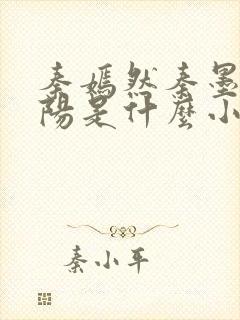 秦嫣然秦墨
陽是什麼小
秦小平